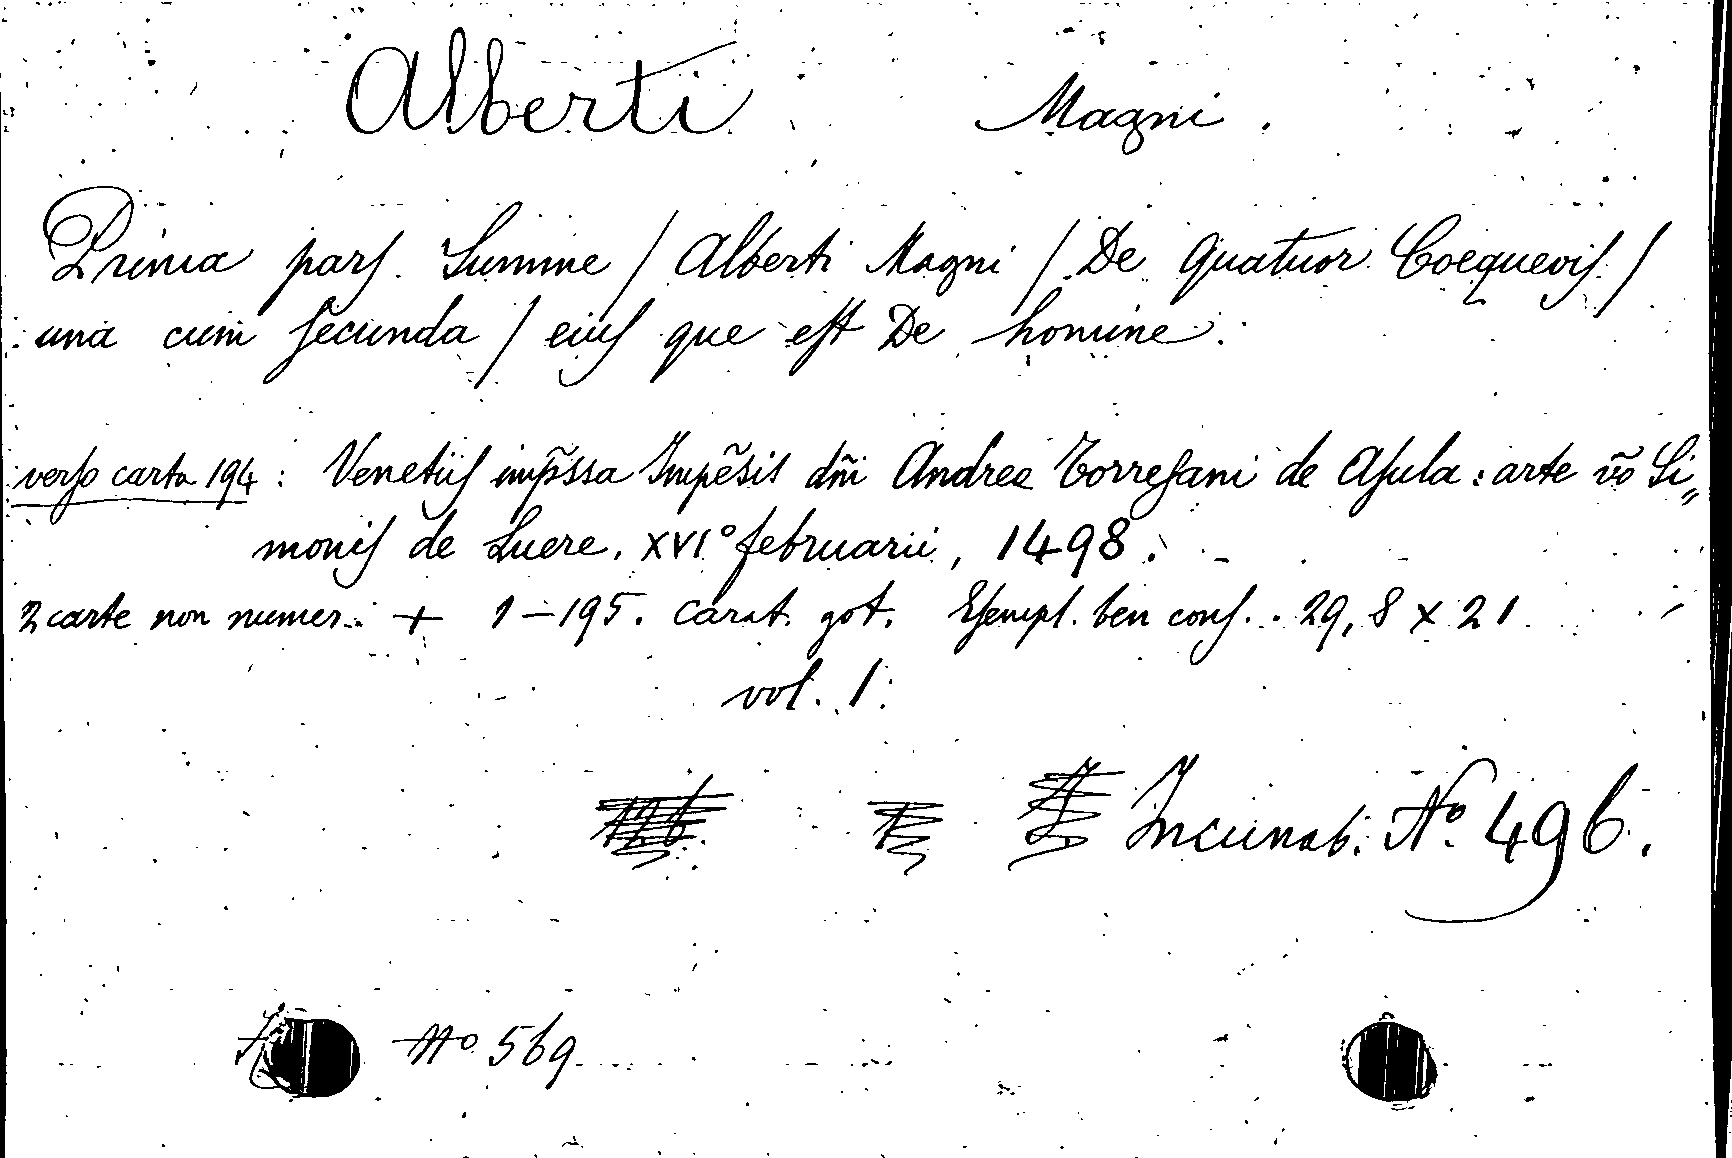 Alberti Magni.
Prima pars. Summe / Alberti Magni / De quatuor Coequevis /
una cum secunda / eius que est De homine.
verso carta 194: Venetiis imp̃ssa Impẽsis dñi Andree Torresani de Asula: arte ṽo Si„
monis de Luere. XVI° februarii, 1498.
2 carte non numer. + 1–195. Carat. got. Esempl. ben cons. 29,8 x 21
vol. 1.
Incunab. N° 496.
N° 569